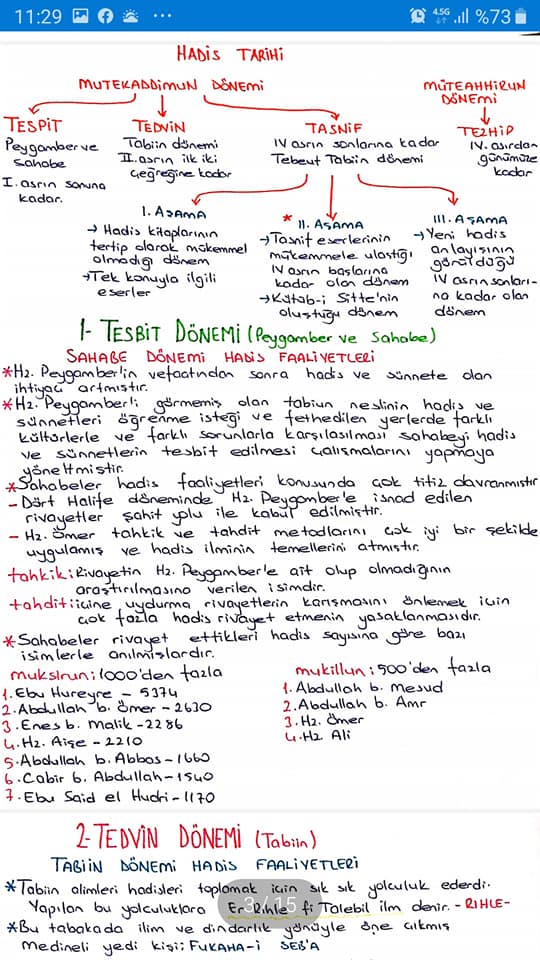 11:29
4.5G
%73
HADİS TARİHİ
MUTEKADDİMUN DÖNEMİ
MÜTEAHHİRUN
DÖNEMİ
TESPİT
Peygamber ve
Sahabe
I. asrın sonuna
kadar.
TEDVİN
Tabiin dönemi
II. asrın ilk iki
çeğreğine kadar
TASNİF
IV asrın sonlarına kadar
Tebeut Tabiin dönemi
TEZHİP
IV. asırdan
günümüze
kadar
I. AŞAMA
→ Hadis kitaplarının
tertip olarak mükemmel
olmadığı dönem
→ Tek konuyla ilgili
eserler
* II. AŞAMA
→ Tasnif eserlerinin
mükemmele ulaştığı
IV asrın başlarına
kadar olan dönem
→ Kütüb-i Sitte'nin
oluştuğu dönem
III. AŞAMA
→ Yeni hadis
anlayışının
görüldüğü
IV asrın sonları-
na kadar olan
dönem
1- TESBİT DÖNEMİ (Peygamber ve Sahabe)
SAHABE DÖNEMİ HADİS FAALİYETLERİ
* Hz. Peygamber'in vefaatından sonra hadis ve sünnete olan
ihtiyaç artmıştır.
* Hz. Peygamber'i görmemiş olan tabiun neslinin hadis ve
sünnetleri öğrenme isteği ve fethedilen yerlerde farklı
kültürlerle ve farklı sorunlarla karşılaşılması sahabeyi hadis
ve sünnetlerin tesbit edilmesi çalışmalarını yapmaya
yöneltmiştir.
* Sahabeler hadis faaliyetleri konusunda çok titiz davranmıştır
- Dört Halife döneminde Hz. Peygamber'e isnad edilen
rivayetler şahit yolu ile kabul edilmiştir.
- Hz. Ömer tahkik ve tahdit metodlarını çok iyi bir şekilde
uygulamış ve hadis ilminin temellerini atmıştır.
tahkik: Rivayetin Hz. Peygamber'e ait olup olmadığının
araştırılmasına verilen isimdir.
tahdit: içine uydurma rivayetlerin karışmasını önlemek için
çok fazla hadis rivayet etmenin yasaklanmasıdır.
* Sahabeler rivayet ettikleri hadis sayısına göre bazı
isimlerle anılmışlardır.
muksirun: 1000'den fazla
1. Ebu Hureyre - 5374
2. Abdullah b. Ömer - 2630
3. Enes b. Malik - 2286
4. Hz. Aişe - 2210
5. Abdullah b. Abbas - 1660
6. Cabir b. Abdullah - 1540
7. Ebu Said el Hudri - 1170
mukillun: 500'den fazla
1. Abdullah b. Mesud
2. Abdullah b. Amr
3. Hz. Ömer
4. Hz Ali
2- TEDVİN DÖNEMİ (Tabiin)
TABİİN DÖNEMİ HADİS FAALİYETLERİ
* Tabiin alimleri hadisleri toplamak için sık sık yolculuk ederdi.
Yapılan bu yolculuklara Er Rihle fi Talebil ilm denir. - RIHLE-
3 / 15
* Bu tabakada ilim ve dindarlık yönüyle öne çıkmış
Medineli yedi kişi: FUKAHA-İ SEB'A